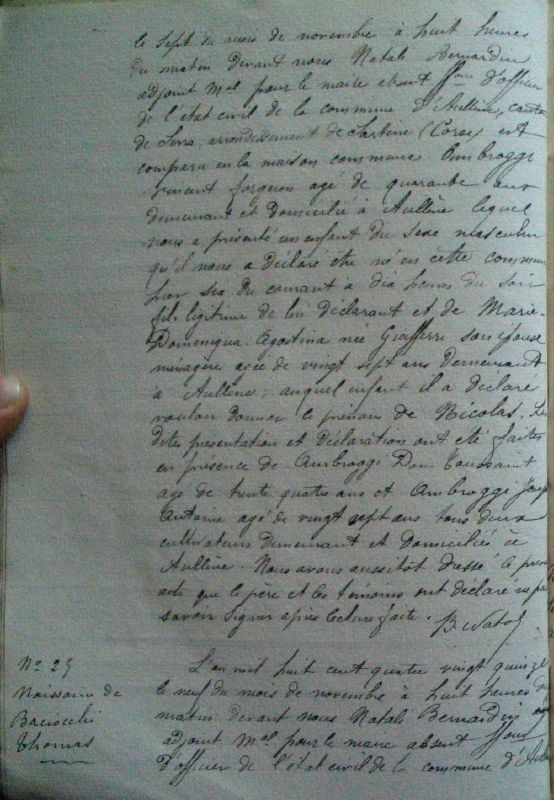 le sept du mois de novembre à huit heures
du matin devant nous Natali Bernardin
adjoint Mal pour le maire absent ffons d'officier
de l'état civil de la commune d'Aullène, canton
de Serra, arrondissement de Sartène (Corse) est
comparu en la maison commune Ambroggi
Vincent forgeron agé de quarante ans
demeurant et domicilié à Aullène lequel
nous a présenté un enfant du sexe masculin
qu'il nous a déclaré etre né en cette commune
hier six du courant à dix heures du soir
fils légitime de lui déclarant et de Marie-
Domeniqua Agostina née son épouse
ménagère agée de vingt sept ans demeurant
à Aullène; auquel enfant il a déclaré
vouloir donner le prénom de Nicolas. Les
dites présentation et déclaration ont été faites
en présence de Ambroggi Don Toussaint
agé de trente quatre ans et Ambroggi
Antoine agé de vingt sept ans tous deux
cultivateurs demeurant et domiciliés à
Aullène. Nous avons aussitôt dressé le présent
acte que le père et les témoins ont déclaré ne pas
savoir signer après lecture faite. B. Natali
No 25
Naissance de
Baciocchi
Thomas
L'an mil huit cent quatre vingt quinze
le neuf du mois de novembre à huit heures du
matin devant nous Natali Bernardin
adjoint Mal pour le maire absent ffons
d'officier de l'état civil de la commune d'Aullène